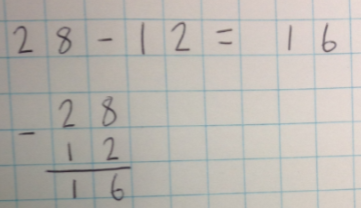 28-12= 16
- 28
12
16